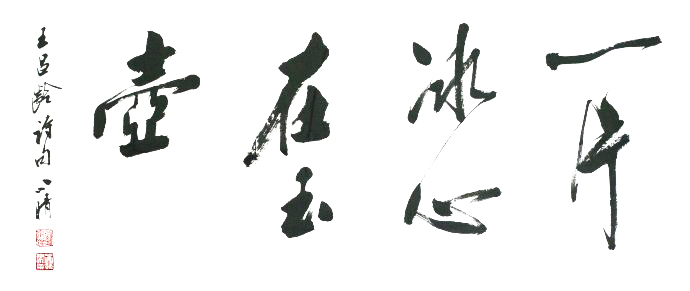 一片
冰心
在玉
壺
王昌齡詩句